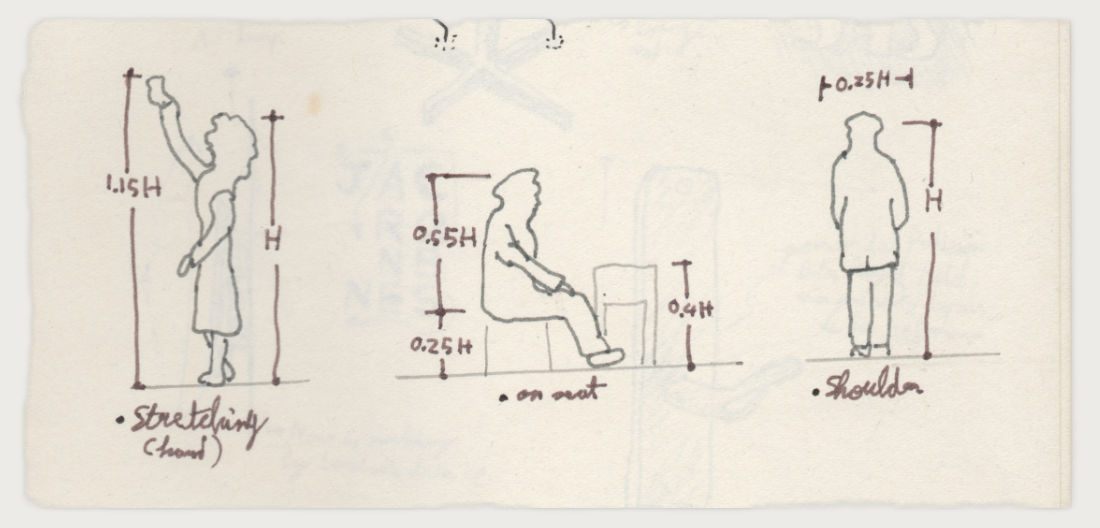 1.15H
H
• Stretching
(hand)
0.55H
0.25H
0.4H
• on seat
0.25H
H
• Shoulder